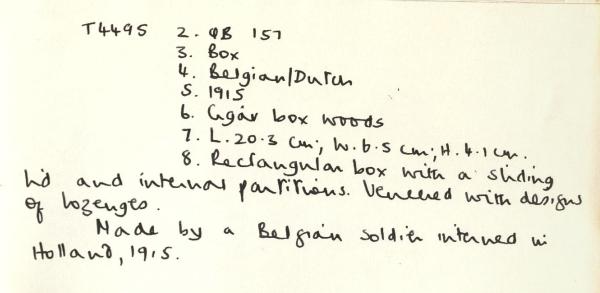 T4495 2. QB 157
3. Box
4. Belgian/Dutch
5. 1915
6. Cigar box woods
7. L. 20.3 cm; W. 6.5 cm; H. 4.1 cm.
8. Rectangular box with a sliding
lid and internal partitions. Veneered with designs
of lozenges.
Made by a Belgian soldier interned in
Holland, 1915.